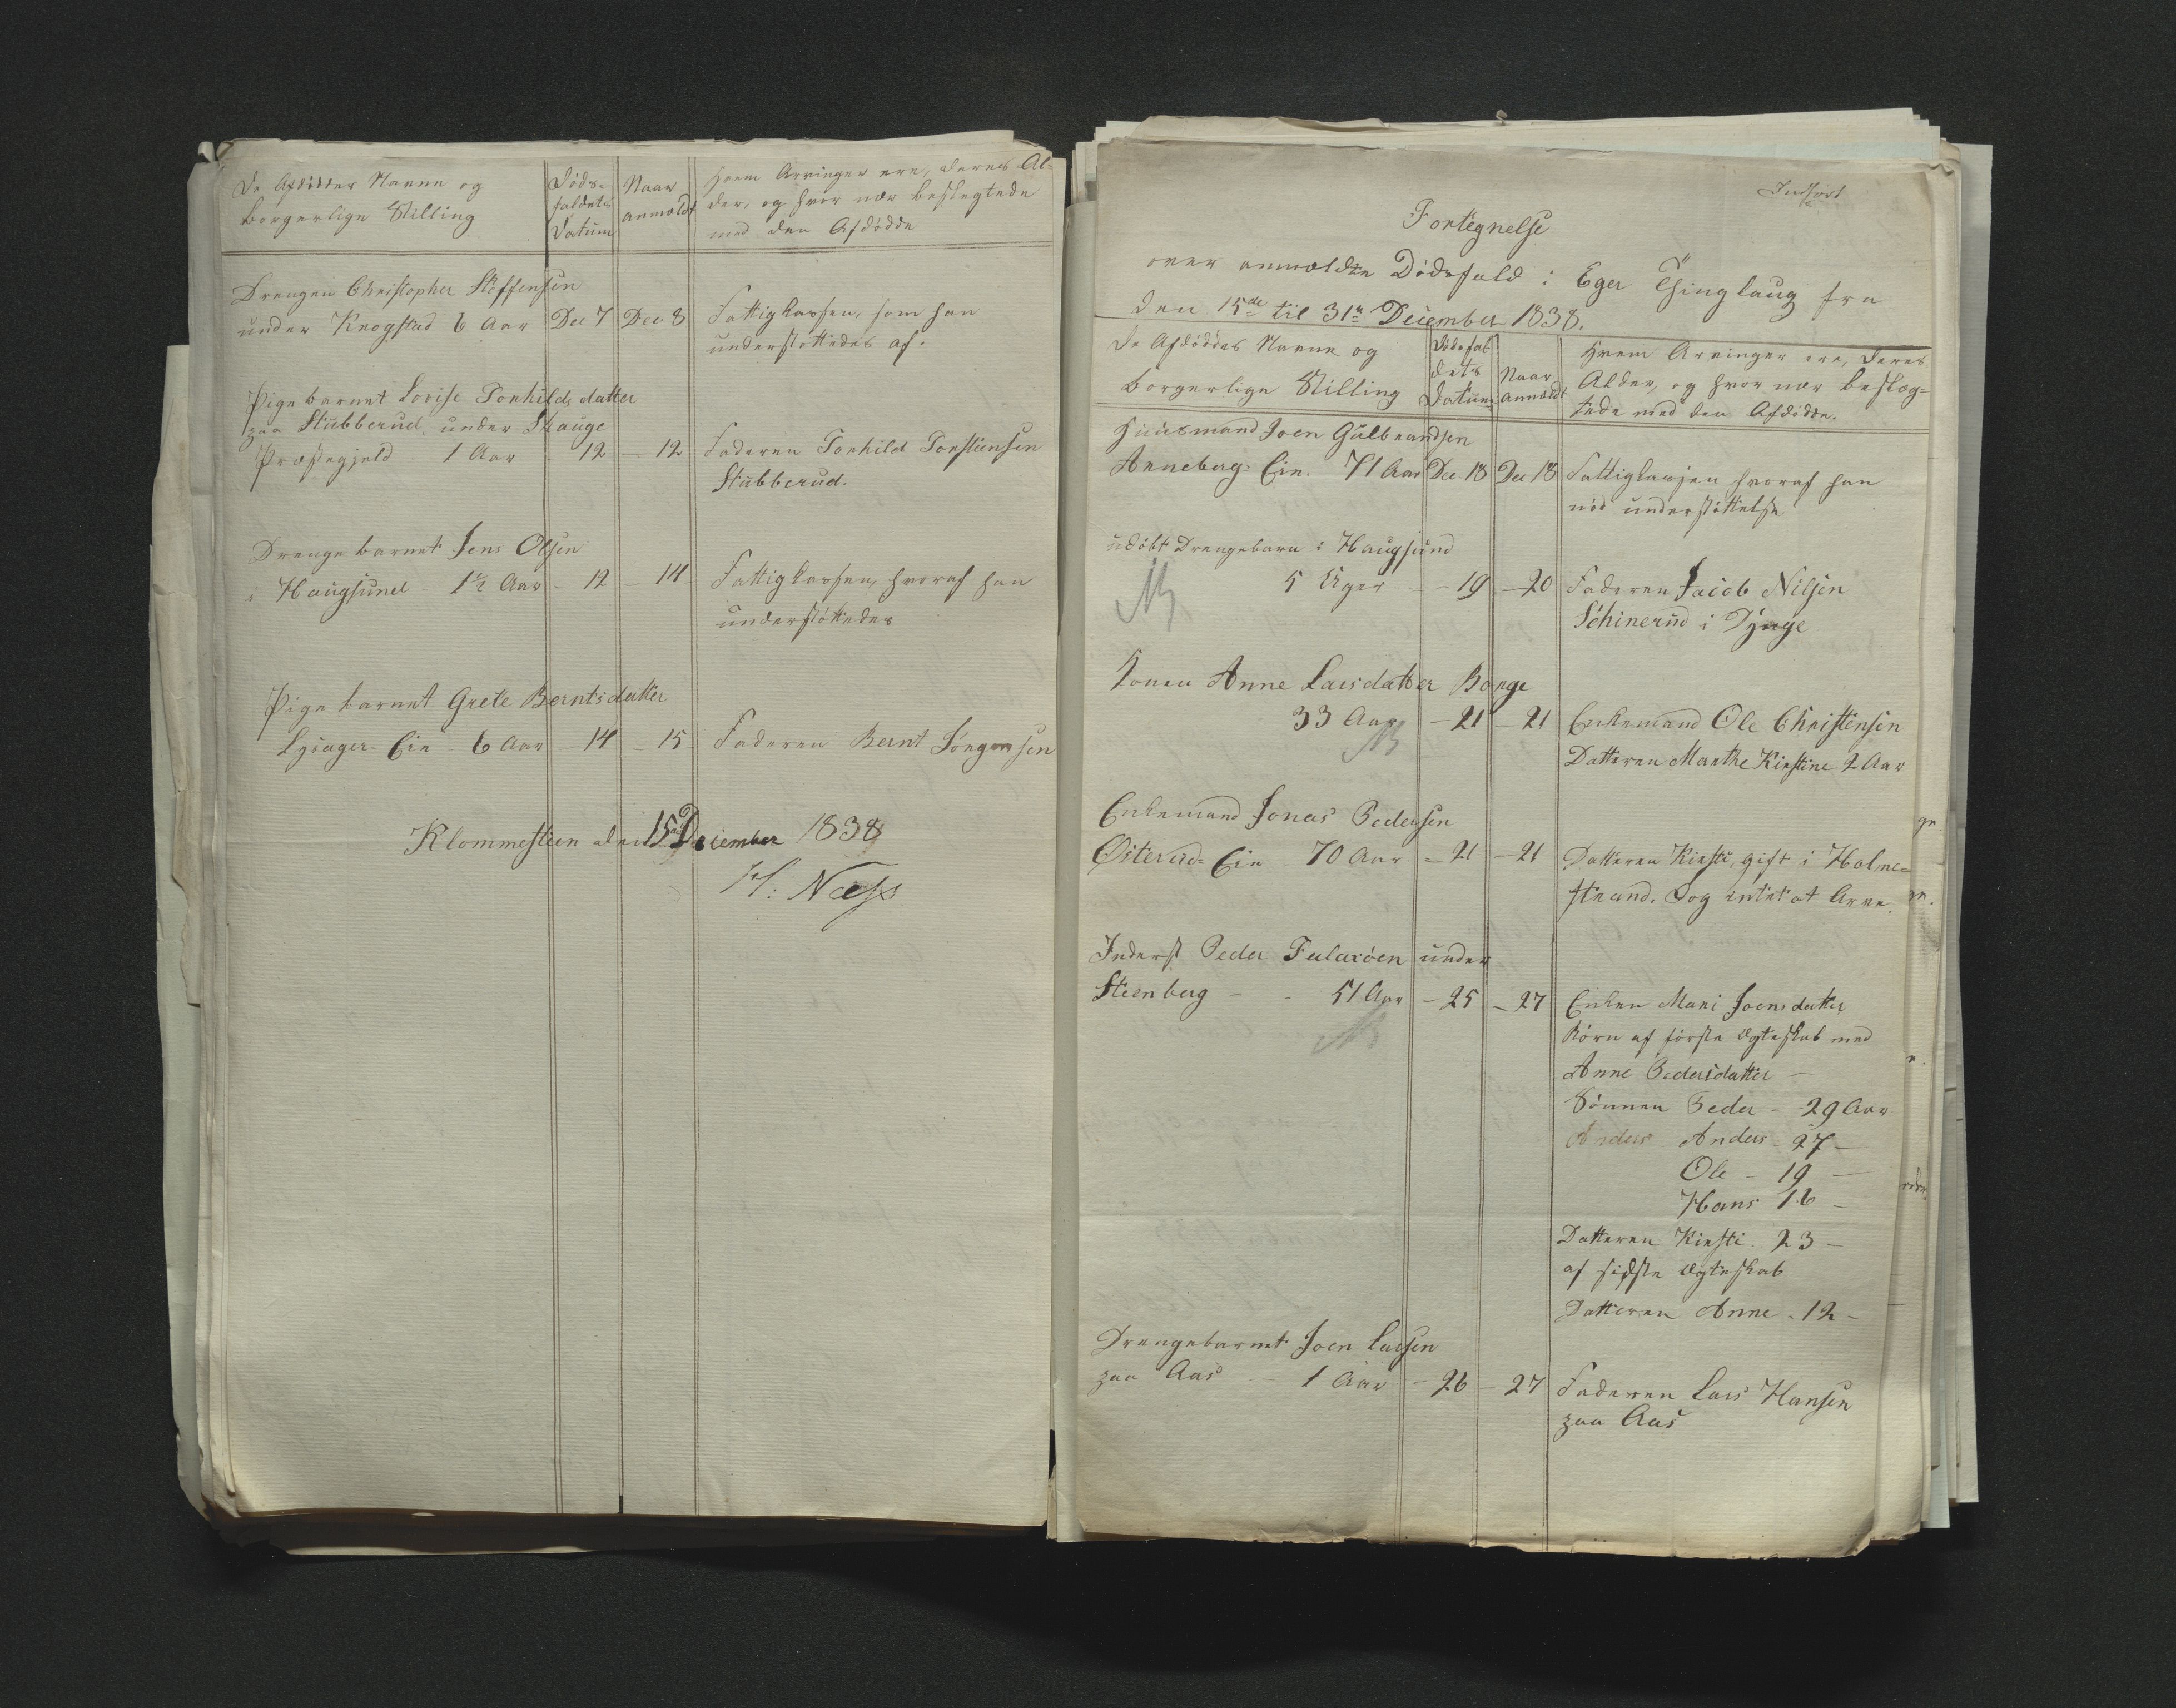 De Afdödes Navne og
borgerlige Stilling
Döds-
faldets
Datum
Naar
anmældt
Hvem Arvinger ere, deres Al-
der, og hvor nær beslegtede
med den Afdödde
Drengen Christopher Steffensen
under Krogstad 6 Aar Dec 7 Dec 8 Fattigkassen, som han
understøttedes af.
Pigebarnet Lovise Torkildsdatter
paa Stubberud under Skauge
Præstegjeld 1 Aar 12 - 12 Faderen Torkild Torstensen
Stubberud.
Drengebarnet Jens Olsen
i Haugsund 1½ Aar - 12 - 14 - Fattigkassen, hvoraf han
understøttedes
Pigebarnet Grete Berntsdatter
Lysager Eie - 6 Aar - 14 - 15 Faderen Bernt Jörgensen
Klommesteen den 15de December 1838
H: Næss
Indfört
Fortegnelse
over anmeldte Dödsfald i Eger Thinglaug fra
den 15de til 31te December 1838.
De Afdöddes Navne og
borgerlige Stilling
Dödsfal
dets
Datum
Naar
anmeldt
Hvem Arvinger ere, deres
Alder, og hvor nær beslæg-
tede med den Afdödte.
Huusmand Joen Gulbrandsen
Anneberg Eie. 71 Aar Dec 18 Dec 18 Fattigkassen hvoraf han
nöd understöttelse
udöbt Drengebarn i Haugsund
5 Uger - 19 - 20 Faderen Jacob Nilsen
Schinerud i
Konen Anne Larsdatter Borge
33 Aar - 21 - 21 Enkemand Ole Christensen
Datteren Marthe Kirstine 2 Aar
Enkemand Jonas Pedersen
Østerud Eie 70 Aar - 21 - 21 Datteren Kirsti, gift i Holme-
strand. Dog intet at Arve.
Inderst Peder Falaröen under
Steenberg - - 51 Aar - 25 - 27 Enken Mari Joensdatter
Börn af förste Ægteskab med
Anne Pedersdatter -
Sönnen Peder - 29 Aar
Anders Anders 27 -
Ole - 19 -
Hans 16 -
Datteren Kirsti 23 -
af sidste Ægteskab
Datteren Anne - 12 -
Drengebarnet Joen Larsen
paa Aas - 1 Aar - 26 - 27 Faderen Lars Hansen
paa Aas